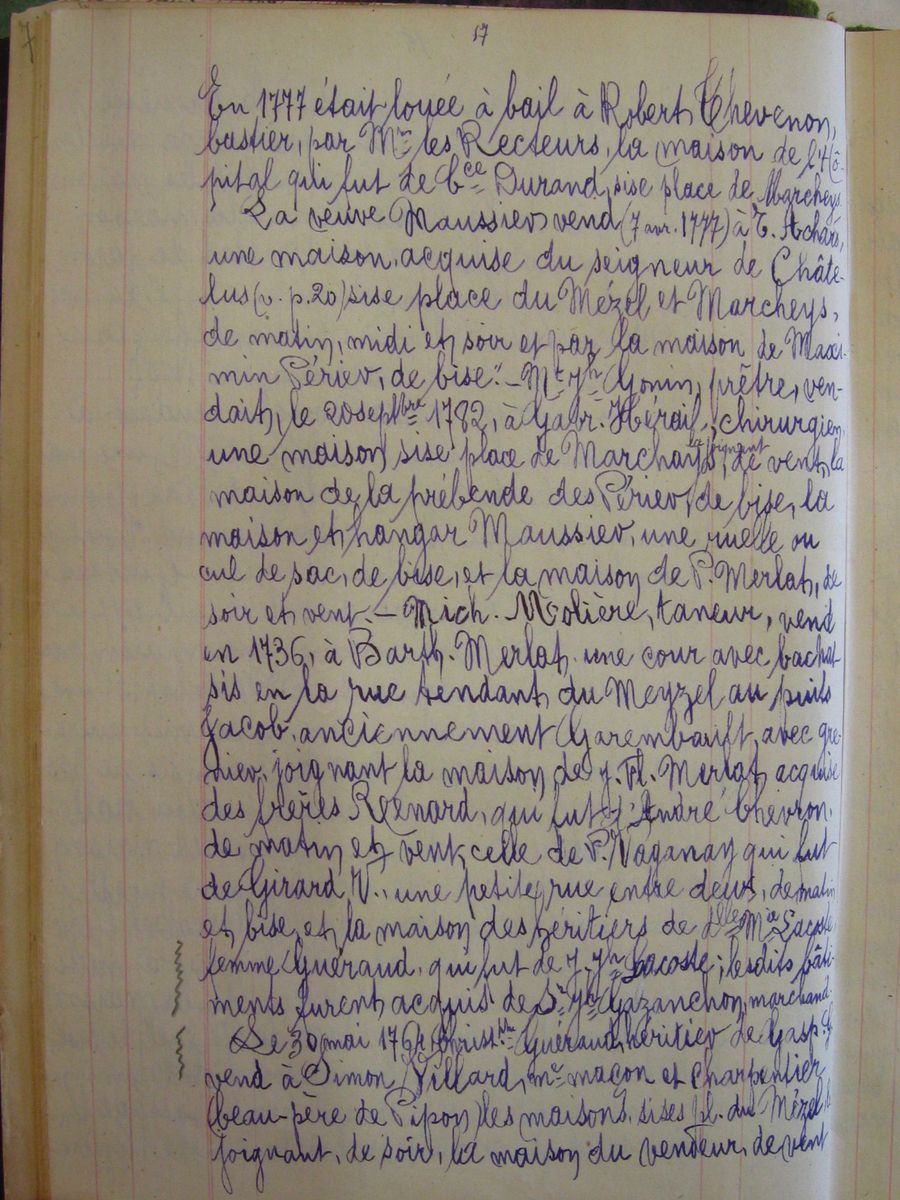 7
17
En 1777 était louée à bail à Robert Thevenon,
bastier, par Mrs les Recteurs, la maison de l'Hô-
pital qui fut de bce Durand, sise place de Marcheys.
La veuve Maussier vend (7 avr. 1777) à E. Achars,
une maison, acquise du seigneur de Châte-
lus (v. p. 20) sise place du Mézel et Marcheys,
de matin, midi et soir et par la maison de Maxi-
min Périer, de bise." - Mre Jh Gonin, prêtre, ven-
dait, le 20 septbre 1782, à Gabr. Hérail, chirurgien,
une maison sise place de Marchays, la joignant de vent, la
maison de la prébende des Périer, de bise, la
maison et hangar Maussier, une ruelle ou
cul de sac, de bise, et la maison de P. Merlat, de
soir et vent. - Mich. Molière, taneur, vend
en 1736, à Barth. Merlat, une cour avec bachat
sis en la rue tendant du Meyzel au puits
Jacob, anciennement Garembauft, avec gre-
nier, joignant la maison de J. Fl. Merlat, acquise
des frères Reenard, qui fut d'André Chevron,
de matin et vent, celle de P. Vaganay qui fut
de Girard V., une petite rue entre deux, de matin
et bise, et la maison des héritiers de dlle Mie Lacoste
femme Guéraud, qui fut de J. Jh Lacoste; lesdits bâti-
ments furent acquis de Sr Jh Gazanchon, marchand.
Le 30 mai 1764 Christ. Guéraud, héritier de Gasp. G
vend à Simon Villard, me maçon et charpentier
(beau-père de Pipon) les maisons, sises pl. du Mézel
joignant, de soir, la maison du vendeur, de vent